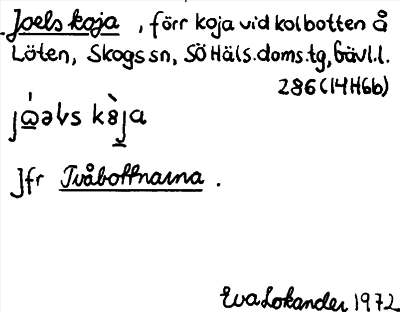 Joels koja, förr koja vid kolbotten å
Löten, Skogs sn, SÖ Häls.doms.tg, Gävl.l.
286 (14H6b)
Jfr Tvåbottnarna.
Eva Lokander 1972